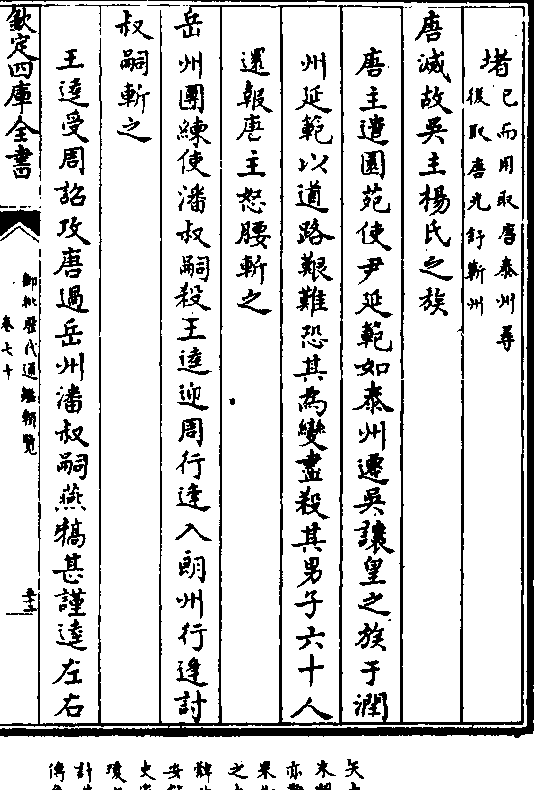 堵已而用取唐泰州尋
從取唐光舒蘄州
唐滅故吳主楊氏之族
唐主遣園苑使尹延範如泰州遷吳讓皇之族于潤
州延範以道路艱難恐其為變盡殺其男子六十人
還報唐主怒腰斬之
岳州團練使潘叔嗣殺王逵迎周行逢入朗州行逢討
叔嗣斬之
王逵受周詔攻唐過岳州潘叔嗣燕犒甚謹逵左右
欽定四庫全書
御批歷代通鑑輯覽
卷七十